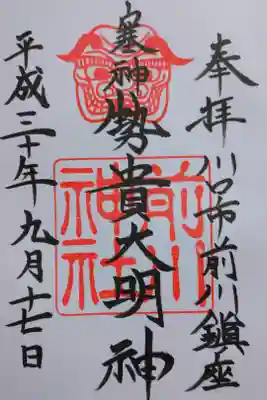 奉拝 川口市前川鎮座
塞神 勢貴大明神
平成三十年九月十七日
前川神社